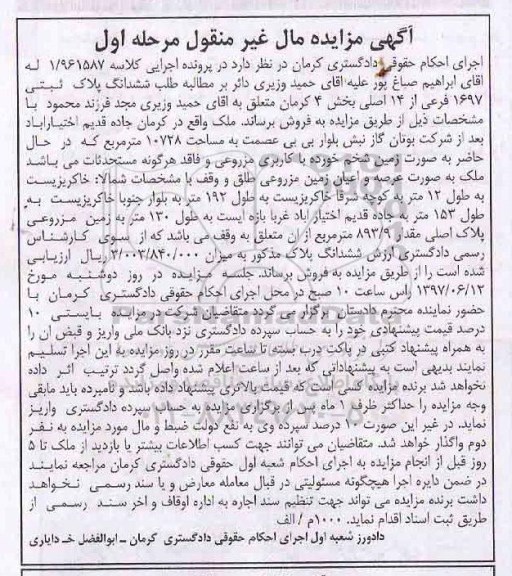 آگهی مزایده مال غیر منقول مرحله اول
اجرای احکام حقوقی دادگستری کرمان در نظر دارد در پرونده اجرایی کلاسه ۱/۹۶۱۵۸۷ له
آقای ابراهیم صباغ پور علیه آقای حمید وزیری دائر بر مطالبه طلب ششدانگ پلاک ثبتی
۱۶۹۷ فرعی از ۱۴ اصلی بخش ۴ کرمان متعلق به آقای حمید وزیری مجد فرزند محمود با
مشخصات ذیل از طریق مزایده به فروش برساند. ملک واقع در کرمان جاده قدیم اختیارآباد
بعد از شرکت بوتان گاز نبش بلوار بی بی عصمت به مساحت ۱۰۷۲۸ مترمربع که در حال
حاضر به صورت زمین شخم خورده با کاربری مزروعی و فاقد هرگونه مستحدثات می باشد
ملک به صورت عرصه و اعیان زمین مزروعی طلق و وقف با مشخصات شمالا: خاکریزیست
به طول ۱۲ متر به کوچه شرقا خاکریزیست به طول ۱۹۲ متر به بلوار جنوبا خاکریزیست به
طول ۱۵۳ متر به جاده قدیم اختیار آباد غربا بازه ایست به طول ۱۳۰ متر به زمین مزروعی
پلاک اصلی مقدار ۸۹۳/۹ مترمربع از آن متعلق به وقف می باشد که از سوی کارشناس
رسمی دادگستری ارزش ششدانگ پلاک مذکور به میزان ۳/۰۰۳/۸۴۰/۰۰۰ ریال ارزیابی
شده است را از طریق مزایده به فروش برساند. جلسه مزایده در روز دوشنبه مورخ
۱۳۹۷/۰۶/۱۲ راس ساعت ۱۰ صبح در محل اجرای احکام حقوقی دادگستری کرمان با
حضور نماینده محترم دادستان برگزار می گردد متقاضیان شرکت در مزایده بایستی ۱۰
درصد قیمت پیشنهادی خود را به حساب سپرده دادگستری نزد بانک ملی واریز و قبض آن را
به همراه پیشنهاد کتبی در پاکت درب بسته تا ساعت مقرر در روز مزایده به این اجرا تسلیم
نمایند بدیهی است به پیشنهاداتی که بعد از ساعت اعلام شده واصل گردد ترتیب اثر داده
نخواهد شد برنده مزایده کسی است که قیمت بالاتری پیشنهاد داده باشد و نامبرده باید مابقی
وجه مزایده را حداکثر ظرف ۱ ماه پس از برگزاری مزایده به حساب سپرده دادگستری واریز
نماید. در غیر این صورت ۱۰ درصد سپرده وی به نفع دولت ضبط و مال مورد مزایده به نفر
دوم واگذار خواهد شد. متقاضیان می توانند جهت کسب اطلاعات بیشتر یا بازدید از ملک تا ۵
روز قبل از انجام مزایده به اجرای احکام شعبه اول حقوقی دادگستری کرمان مراجعه نمایند
در ضمن دایره اجرا هیچگونه مسئولیتی در قبال معامله معارض و یا سند رسمی نخواهد
داشت برنده مزایده می تواند جهت تنظیم سند اجاره به اداره اوقاف و اخر سند رسمی از
طریق ثبت اسناد اقدام نماید. ۱۰۰۰م / الف
دادورز شعبه اول اجرای احکام حقوقی دادگستری کرمان ــ ابوالفضل خدایاری